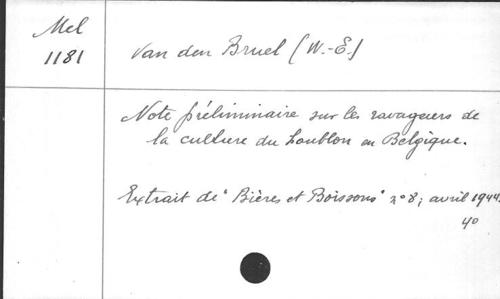 Mel
1181
Van den Bruel (W.-E.)
Note préliminaire sur les ravageurs de
la culture du houblon en Belgique.
Extrait de "Bières et Boissons" n°8; avril 1944.
40